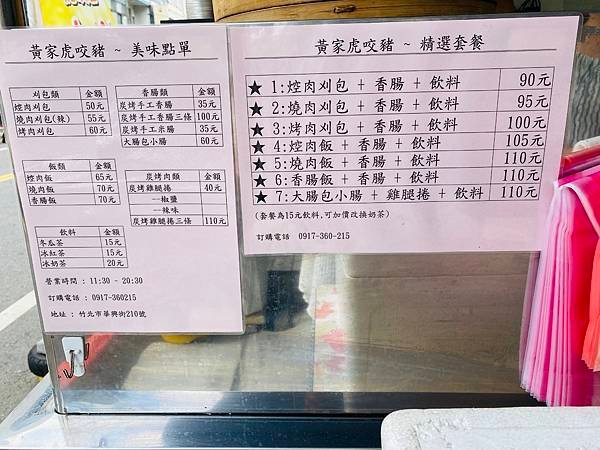 黃家虎咬豬 ~ 美味點單
刈包類 金額
焢肉刈包 50元
燒肉刈包(辣) 55元
烤肉刈包 60元
香腸類 金額
炭烤手工香腸 35元
炭烤手工香腸三條 100元
炭烤手工米腸 35元
大腸包小腸 60元
飯類 金額
焢肉飯 65元
燒肉飯 70元
香腸飯 70元
炭烤肉類 金額
炭烤雞腿捲 40元
--椒鹽
--辣味
炭烤雞腿捲三條 110元
飲料 金額
冬瓜茶 15元
冰紅茶 15元
冰奶茶 20元
營業時間 : 11:30 - 20:30
訂購電話 : 0917-360215
地址 : 竹北市華興街210號
黃家虎咬豬 ~ 精選套餐
★ 1:焢肉刈包 + 香腸 + 飲料 90元
★ 2:燒肉刈包 + 香腸 + 飲料 95元
★ 3:烤肉刈包 + 香腸 + 飲料 100元
★ 4:焢肉飯 + 香腸 + 飲料 105元
★ 5:燒肉飯 + 香腸 + 飲料 110元
★ 6:香腸飯 + 香腸 + 飲料 110元
★ 7:大腸包小腸 + 雞腿捲 + 飲料 110元
(套餐為15元飲料,可加價改換奶茶)
訂購電話 0917-360-215